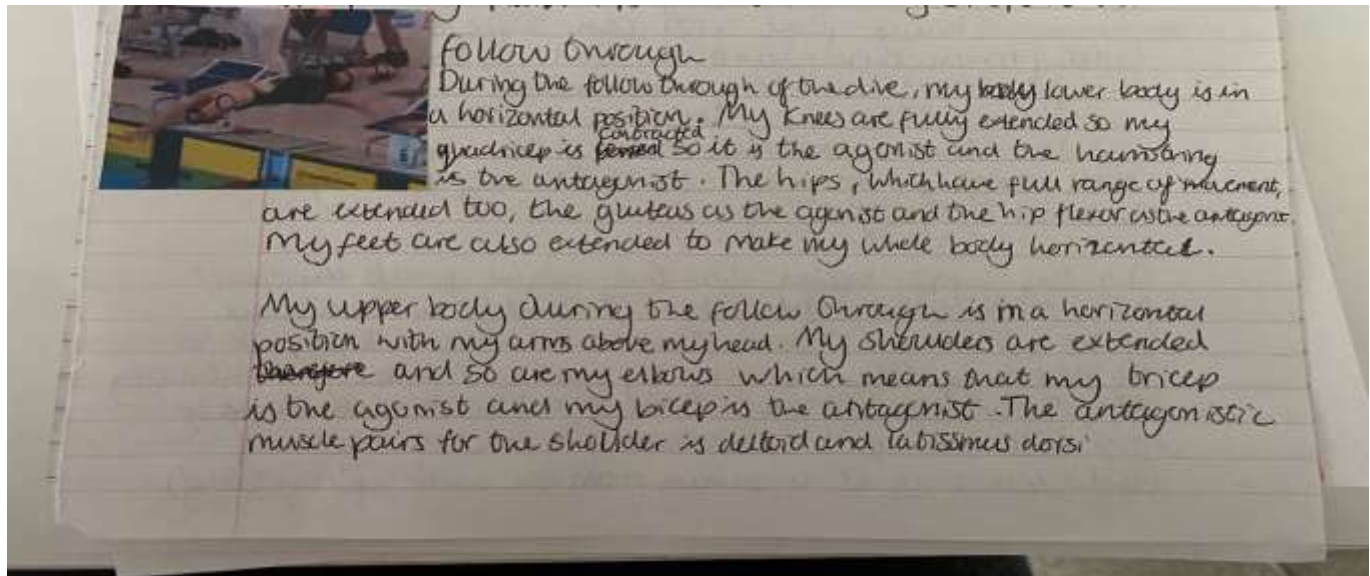 follow through
During the follow through of the dive, my body lower body is in
a horizontal position. My knees are fully extended so my
quadricep is contracted so it is the agonist and the hamstring
is the antagonist. The hips, which have full range of movement,
are extended too, the gluteus as the agonist and the hip flexor as the antagonist.
My feet are also extended to make my whole body horizontal.
My upper body during the follow through is in a horizontal
position with my arms above my head. My shoulders are extended
therefore and so are my elbows which means that my tricep
is the agonist and my bicep is the antagonist. The antagonistic
muscle pairs for the sholder is deltoid and latissmus dorsi